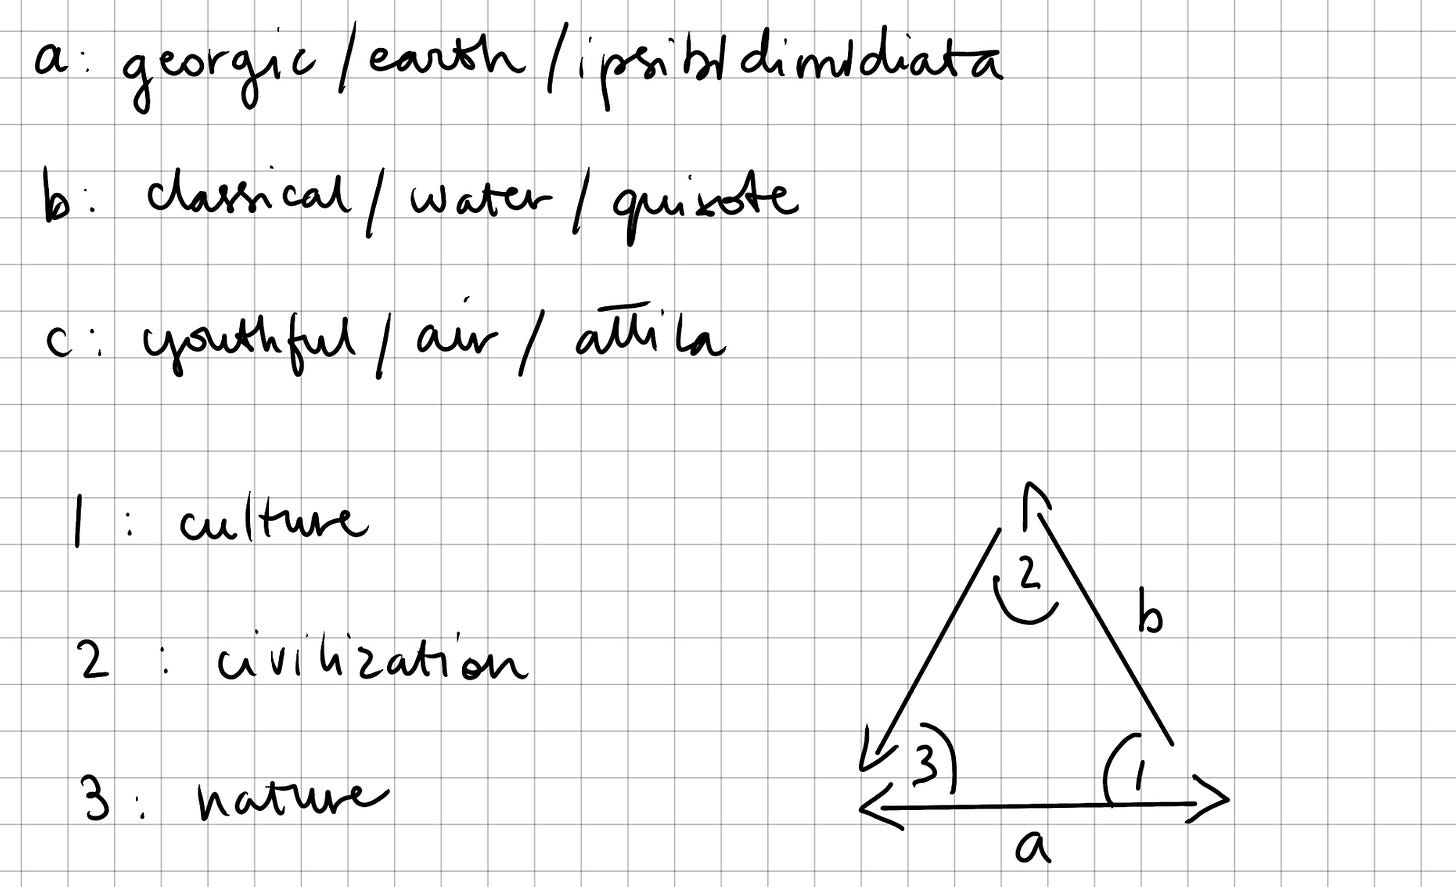 a: georgic / earth /
b: classical / water / quixote
c: youthful / air / attila
1 : culture
2 : civilization
3 : nature
2
b
3
1
a